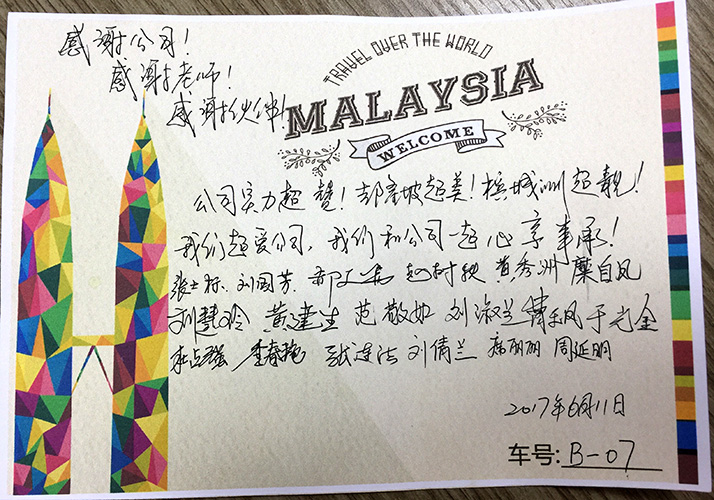 感谢公司!
感谢老师!
感谢伙伴!
TRAVEL OVER THE WORLD
MALAYSIA
WELCOME
公司实力超赞! 超美! 槟城 超靓!
我们超爱公司, 我们和公司一起心享事承!
刘国芳 黄秀洲 糜自凤
刘慧玲 黄建生 范敬如 刘淑兰 于光金
刘倩兰 丽丽 周延明
2017年6月11日
车号: B-07